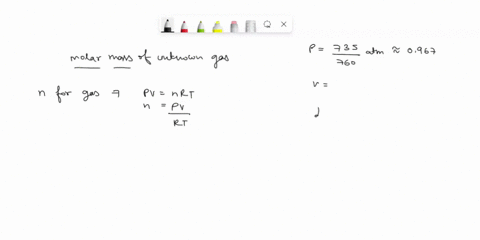 molar mass of unknown gas
n for gas → PV = nRT
n = PV
RT
P = 735 atm ≈ 0.967
760
V =